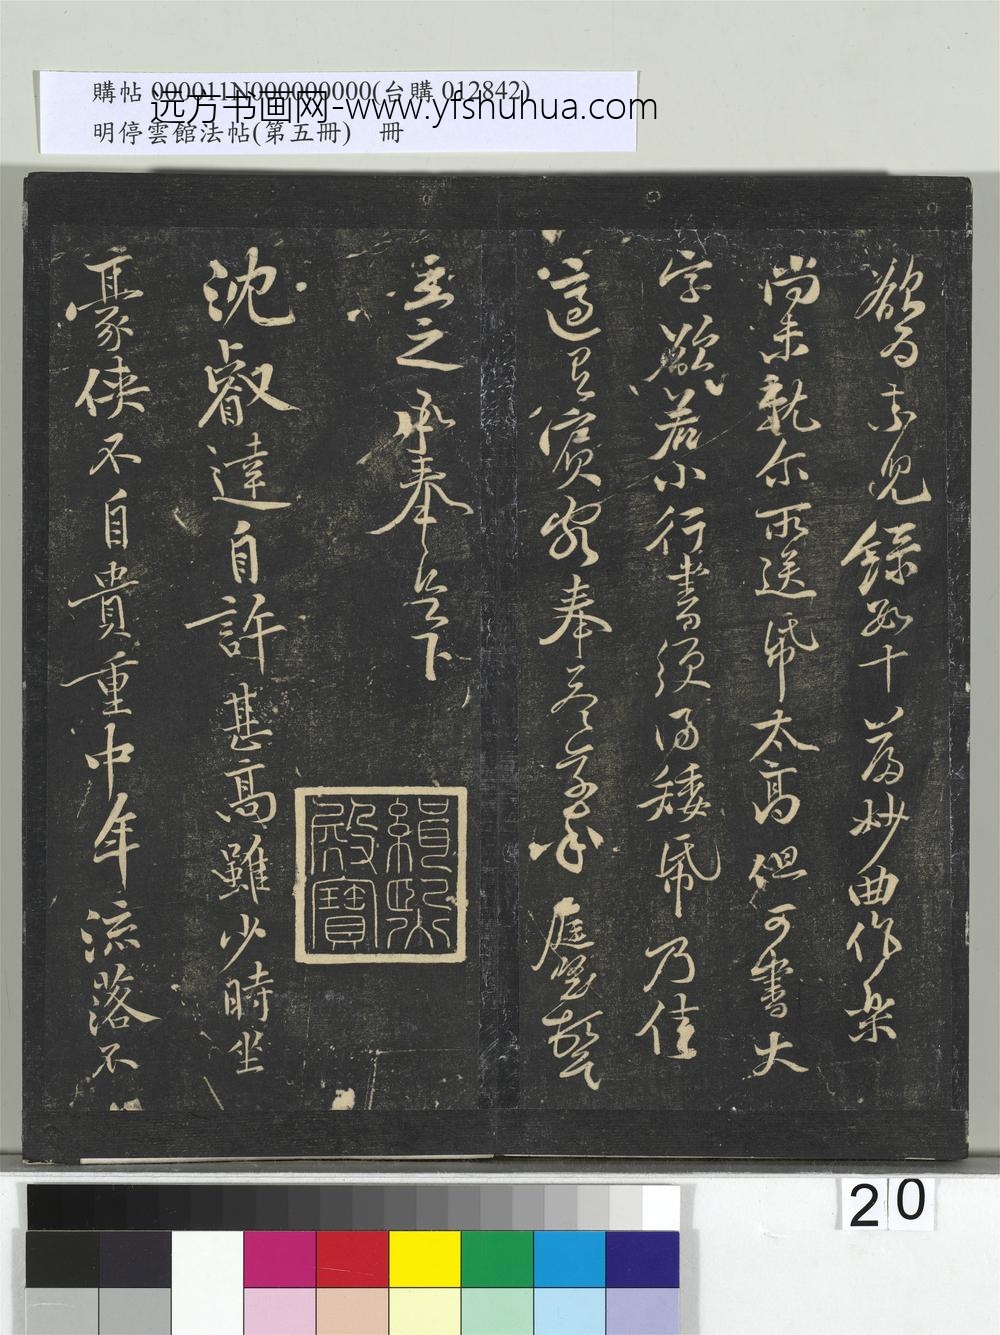 購帖 000011N000000000(台購 012842)
远方书画网-www.yfshuhua.com
明停雲館法帖(第五冊) 冊
欲為素兒錄數十篇妙曲作樂
尚未就尔所送紙太高但可書大
字欲若小行書須得矮紙乃佳
適有賓客奉答草率庭堅頓首
立之承奉足下
緝熙殿寶
沈叡達自許甚高雖少時坐
豪俠不自貴重中年流落不
20